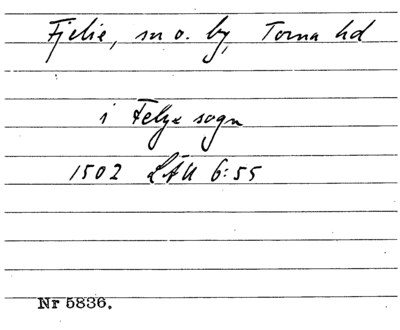 Fjelie, sn o. by, Torna hd
i Felye sogn
1502 LÄU 6:55
Nr 5836.